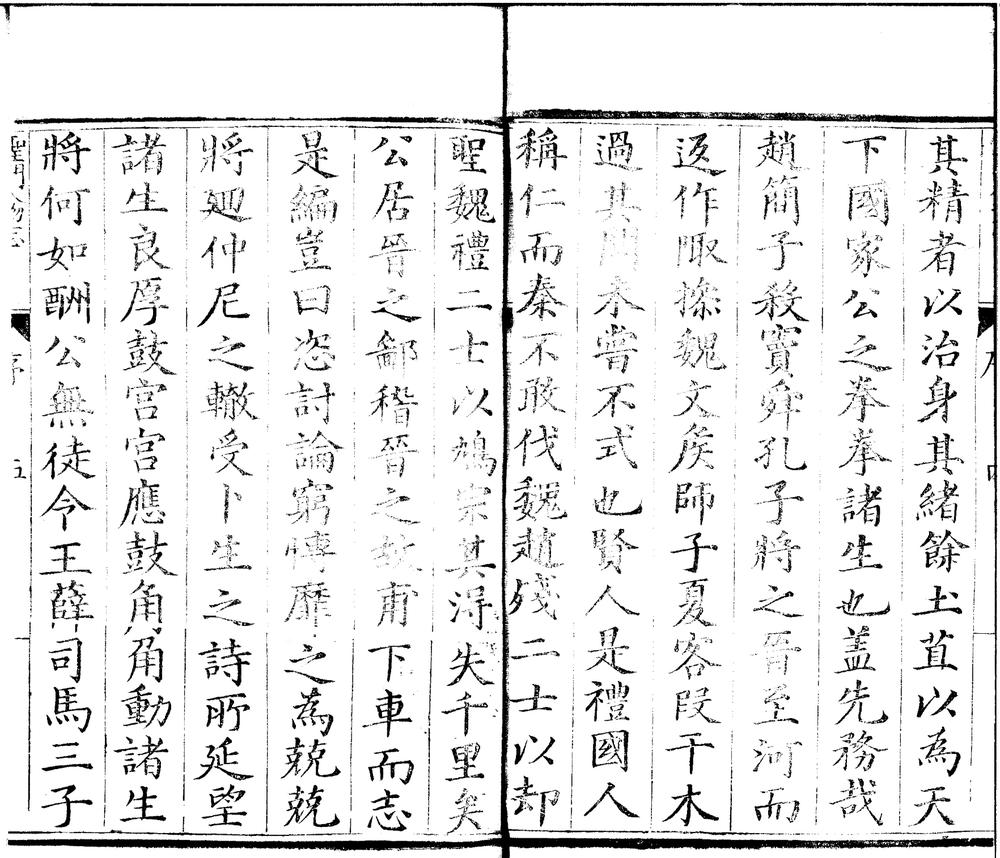 其精者以治身其緒餘土苴以為天
下國家公之拳拳諸生也盖先務哉
趙簡子殺竇舜孔子將之晉至河而
返作陬操魏文侯師子夏客段干木
過其閭未嘗不式也賢人是禮國人
稱仁而秦不敢伐魏趙殘二士以却
聖魏禮二士以鳩宗其淂失千里矣
公居晉之鄙稽晉之故甫下車而志
是編豈曰恣討論窮愽靡之為兢兢
將廻仲尼之轍受卜生之詩所延望
諸生良厚鼓宮宮應鼓角角動諸生
將何如酬公無徒令王薛司馬三子
序
五